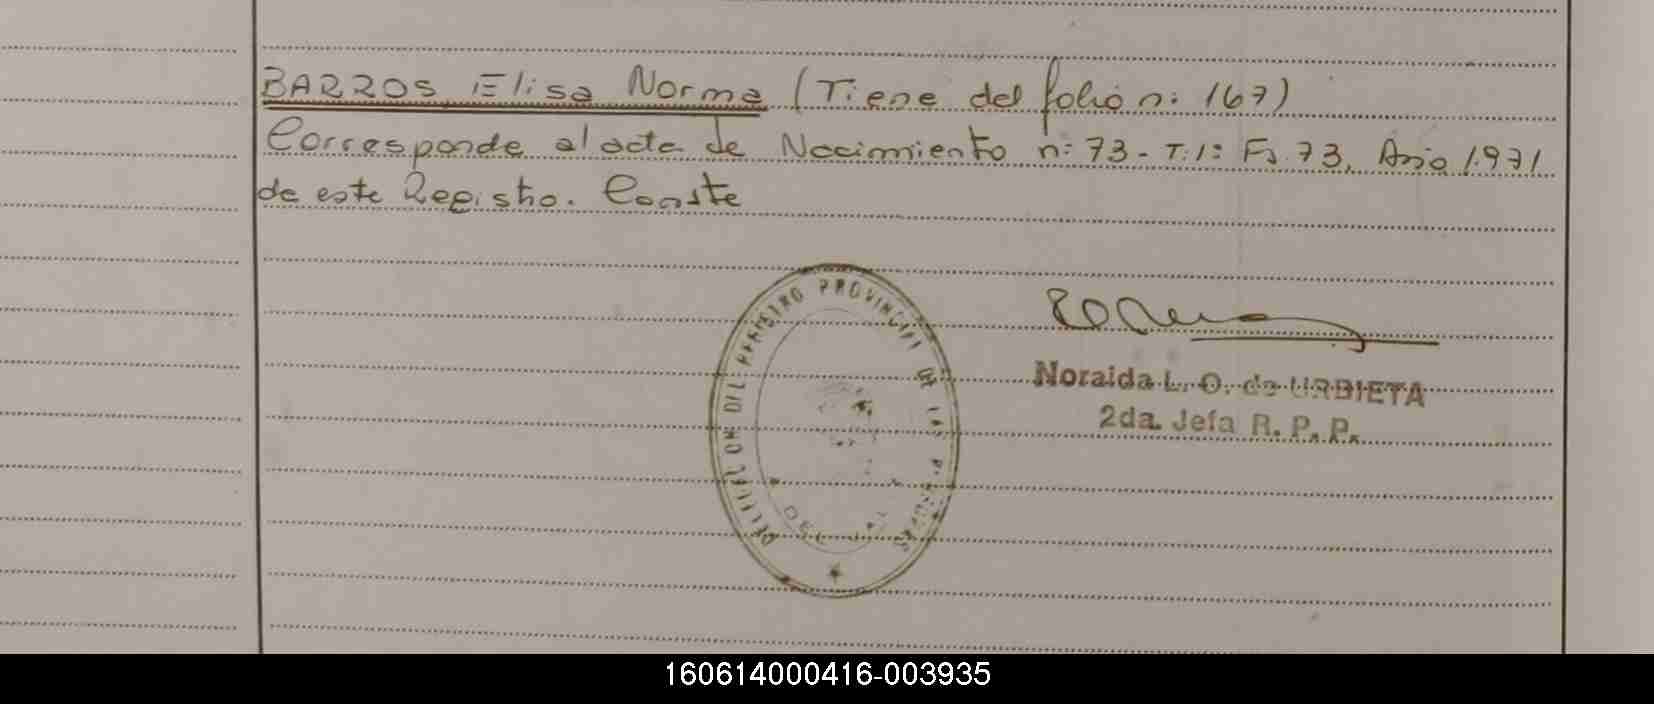 BARROS, Elisa Norma (Tiene del folio n: 167)
Corresponde al acta de Nacimiento n: 73 - T.1: Fs. 73, Año 1.971
de este Registro. Conste
REGISTRO PROVINCIAL DE LAS
Noraida L. O. de URBIETA
2da. Jefa R. P. P.
160614000416-003935